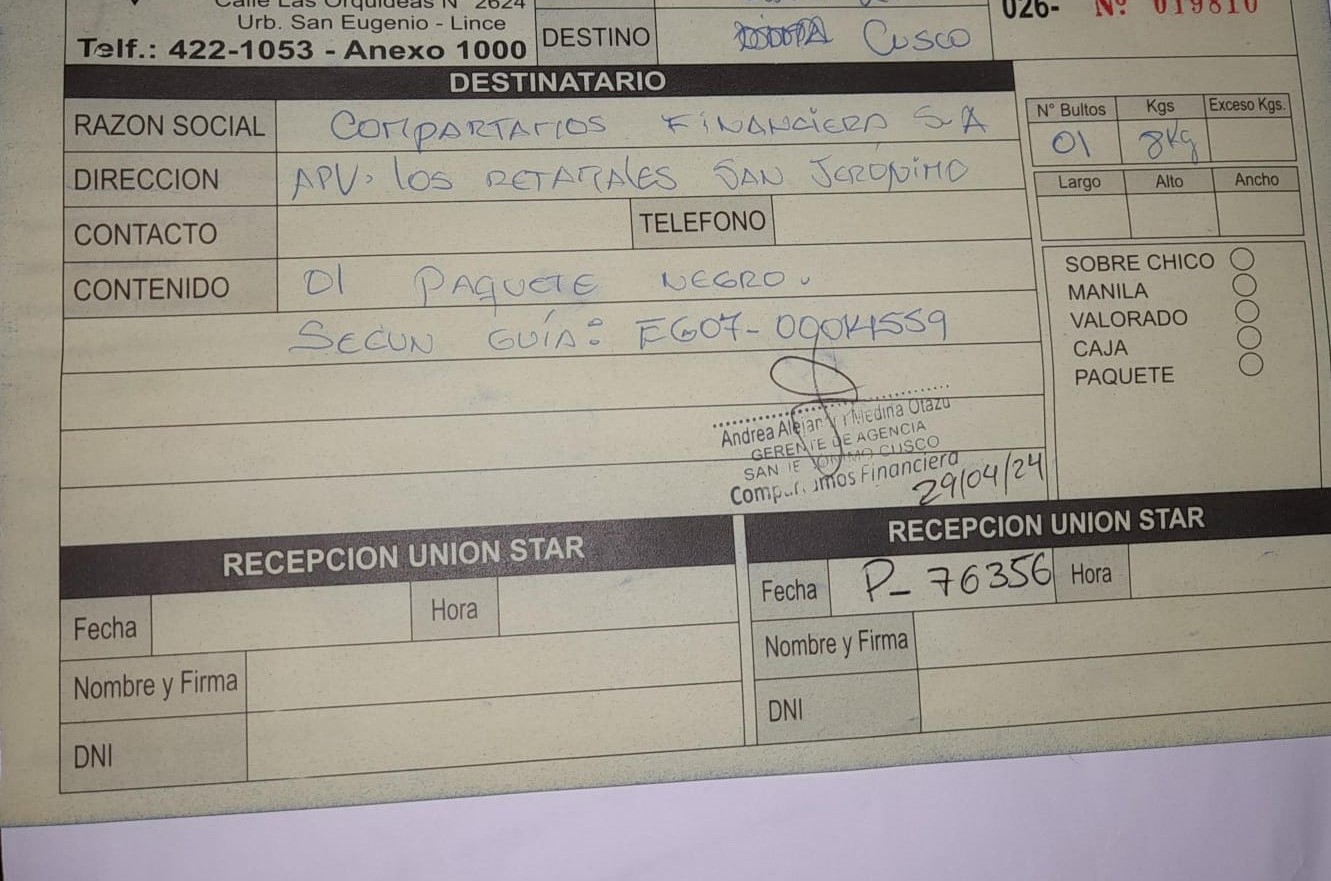 Calle Las Orquídeas N° 2624
Urb. San Eugenio - Lince
Telf.: 422-1053 - Anexo 1000
DESTINO Cusco
026- Nº 019810
DESTINATARIO
RAZON SOCIAL COMPARTAMOS FINANCIERA S.A
DIRECCION APV. LOS RETAMALES SAN JERÓNIMO
CONTACTO TELEFONO
CONTENIDO 01 PAQUETE NEGRO.
SEGUN GUÍA: EG07-00014559
N° Bultos Kgs Exceso Kgs.
01 8Kg
Largo Alto Ancho
SOBRE CHICO
MANILA
VALORADO
CAJA
PAQUETE
Andrea Medina Otazu
GERENTE DE AGENCIA
SAN JERONIMO CUSCO
Compartamos Financiera
29/04/24
RECEPCION UNION STAR
Fecha Hora
Nombre y Firma
DNI
RECEPCION UNION STAR
Fecha P- 76356 Hora
Nombre y Firma
DNI